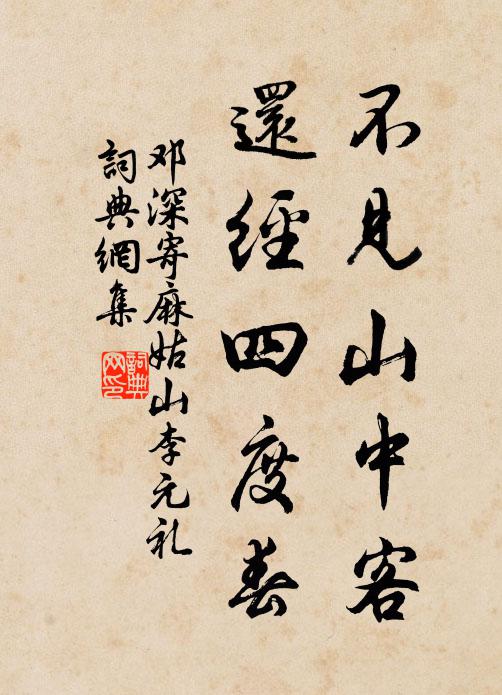 不見山中客
還經四度春
邓深寄麻姑山李元礼
詞典網集
詞典网印